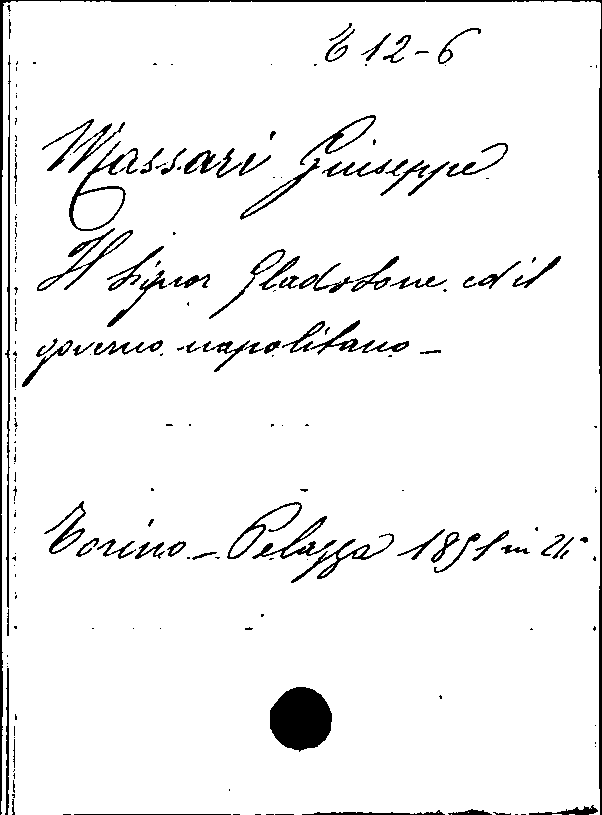 E 12-6
Massari Giuseppe
Il Signor Gladstone ed il
governo napolitano -
Torino - Pelazza 1851 in